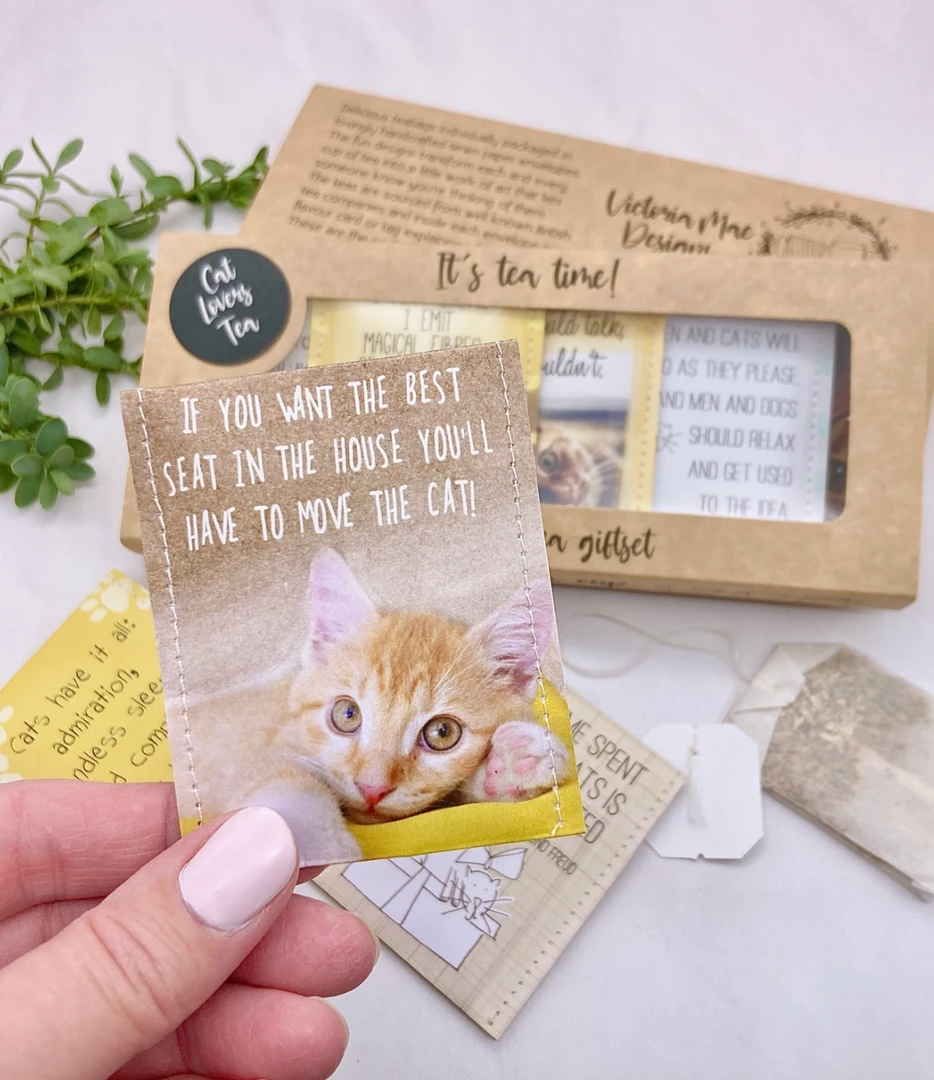 Delicious teabags individually packaged in
lovingly handcrafted sewn paper envelopes
The fun designs transform each and every
cup of tea into a little work of art that lets
someone know you're thinking of them
The teas are sourced from well known British
tea companies and inside each envelope
flavour card or tag
These are the
Victoria Mae
Designs
It's tea time!
Cat
Lovers
Tea
I EMIT
MAGICAL FIBRES
talk,
N AND CATS WILL
AS THEY PLEASE
AND MEN AND DOGS
SHOULD RELAX
AND GET USED
TO THE IDEA
giftset
IF YOU WANT THE BEST
SEAT IN THE HOUSE YOU'LL
HAVE TO MOVE THE CAT!
Cats have it all:
admiration,
ndless slee
d comp
ME SPENT
ATS IS
ED
FREUD